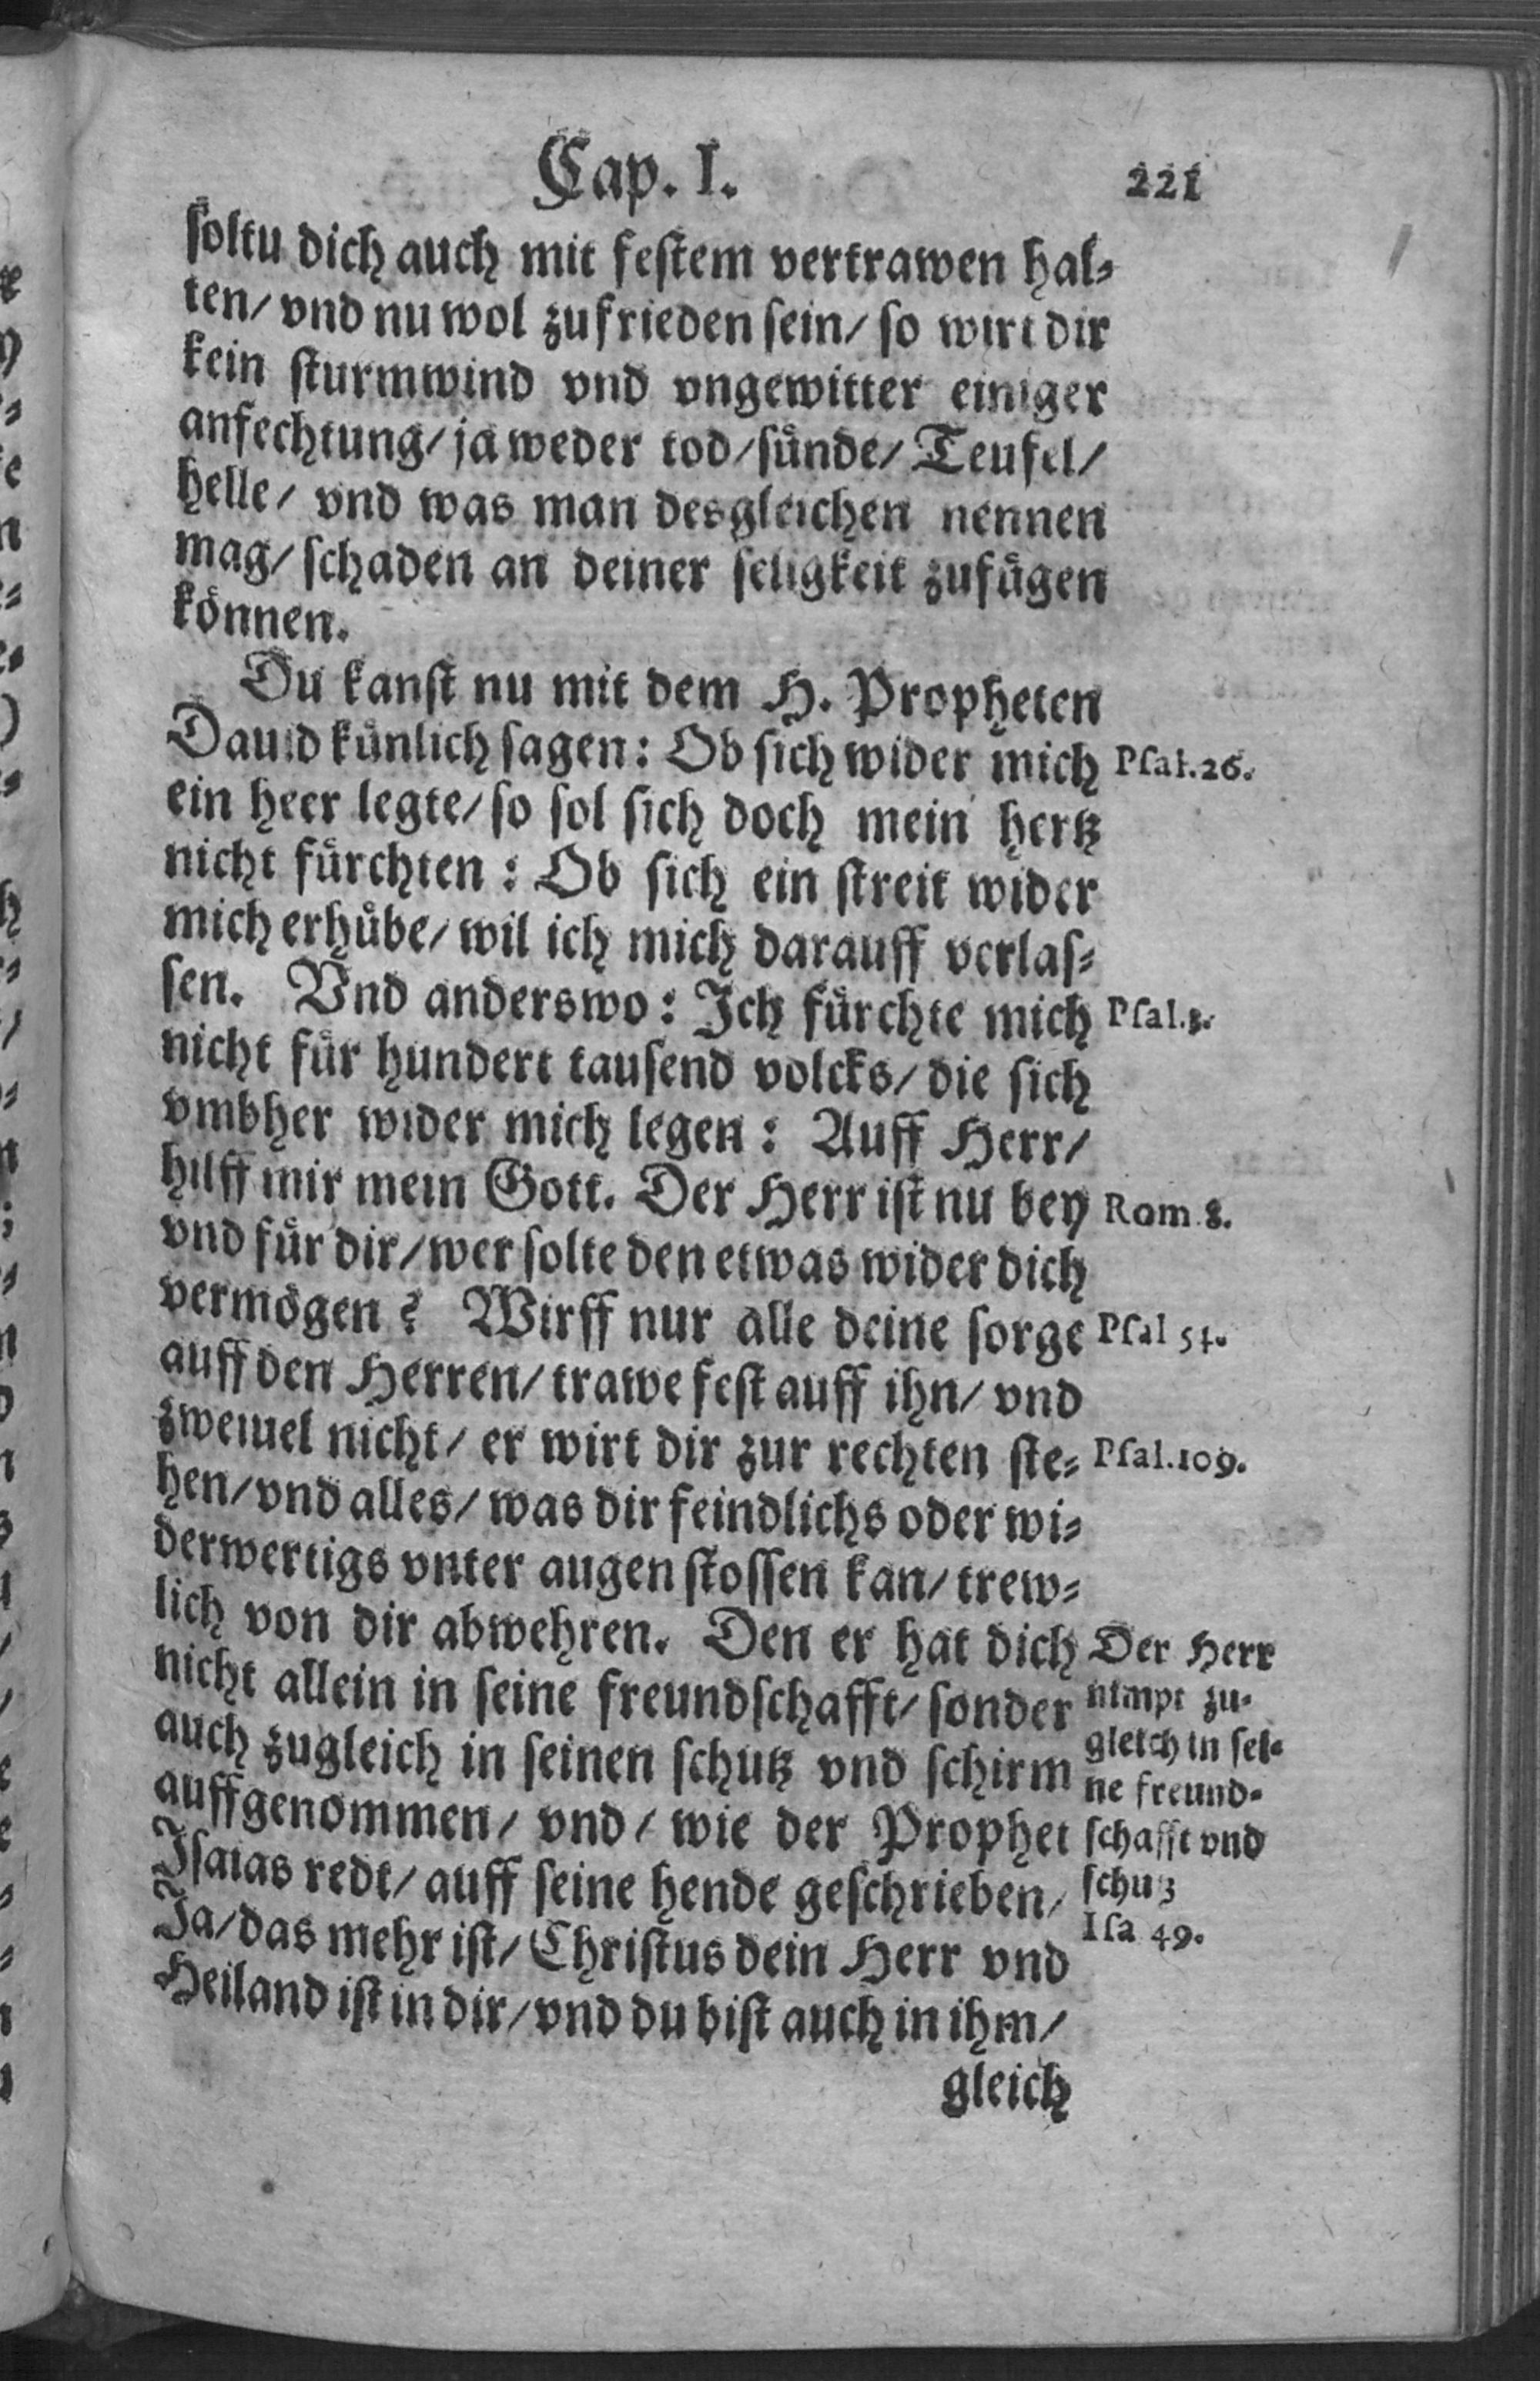 Cap. I. 221
soltu dich auch mit festem vertrawen hal⸗
ten/ vnd nu wol zufrieden sein/ so wirt dir
kein sturmwind vnd vngewitter einiger
anfechtung/ ja weder tod/ sünde/ Teufel/
helle/ vnd was man desgleichen nennen
mag/ schaden an deiner seligkeit zufügen
können.
Du kanst nu mit dem H. Propheten
Dauid künlich sagen: Ob sich wider mich
Psal. 26.
ein heer legte/ so sol sich doch mein hertz
nicht fürchten: Ob sich ein streit wider
mich erhübe/ wil ich mich darauff verlas⸗
sen. Vnd anderswo: Ich fürchte mich
Psal. 3.
nicht für hundert tausend volcks/ die sich
vmbher wider mich legen: Auff Herr/
hilff mir mein Gott. Der Herr ist nu bey
Rom 8.
vnd für dir/ wer solte den etwas wider dich
vermögen? Wirff nur alle deine sorge
Psal 54.
auff den Herren/ trawe fest auff ihn/ vnd
zweiuel nicht/ er wirt dir zur rechten ste⸗
Psal. 109.
hen/ vnd alles/ was dir feindlichs oder wi⸗
derwertigs vnter augen stossen kan/ trew⸗
lich von dir abwehren. Den er hat dich
nicht allein in seine freundschafft/ sonder
auch zugleich in seinen schutz vnd schirm
auffgenommen/ vnd/ wie der Prophet
Isaias redt/ auff seine hende geschrieben/
Ja/ das mehr ist/ Christus dein Herr vnd
Heiland ist in dir/ vnd du bist auch in ihm/
Der Herr
nimpt zu⸗
gleich in sei⸗
ne freund⸗
schafft vnd
schutz
Isa 49.
gleich